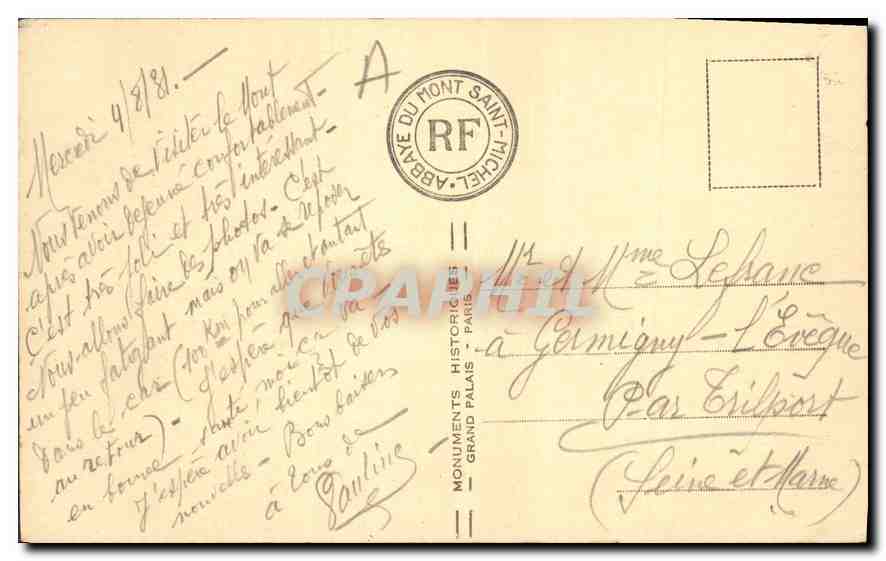 Mercredi 4/8/81.—
Nous venons de visiter le Mont
après avoir déjeuné confortablement-
C'est très joli et très intéressant-
Nous allons faire des photos- C'est
un peu fatigant mais on va se reposer
dans le car (100 Km pour aller et autant
au retour)- J'espère que vous êtes
en bonne santé, moi ça va
J'espère avoir bientôt de vos
nouvelles- Bons baisers
à tous de
Pauline
A
ABBAYE DU MONT SAINT-MICHEL
RF
— MONUMENTS HISTORIQUES —
— GRAND PALAIS - PARIS —
Mr et Mme Lefranc
à Germigny-l'Evêque
Par Trilport
(Seine et Marne)
CPAPHIL